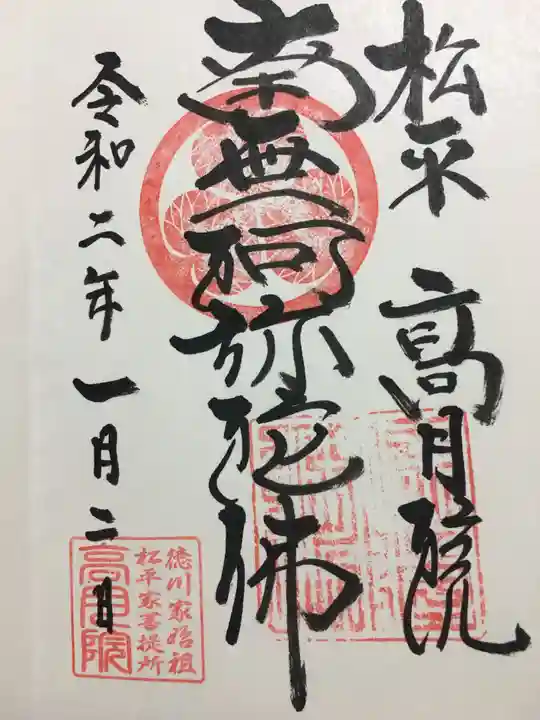 松平 高月院
南無阿弥陀佛
令和二年一月二日
徳川家始祖
松平家菩提所
高月院